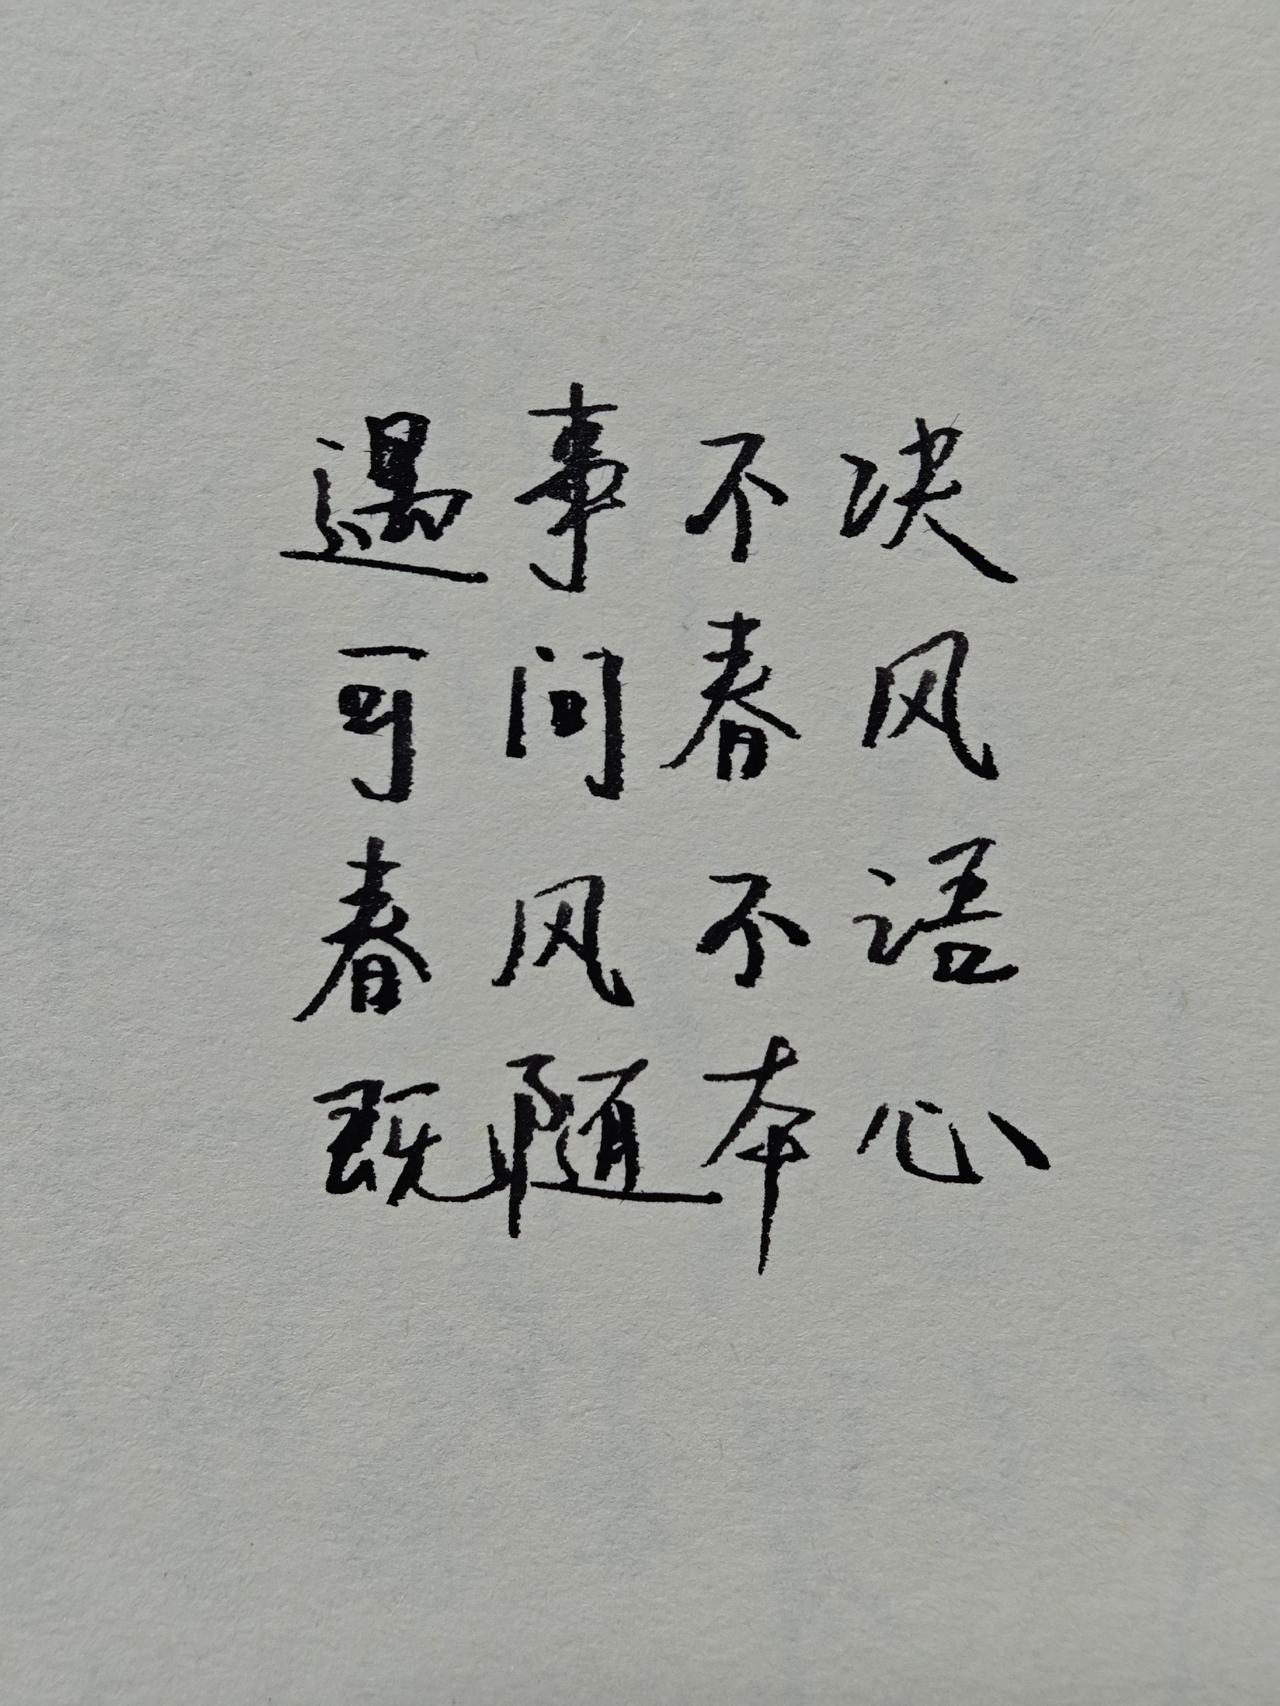 遇事不决
可问春风
春风不语
既随本心